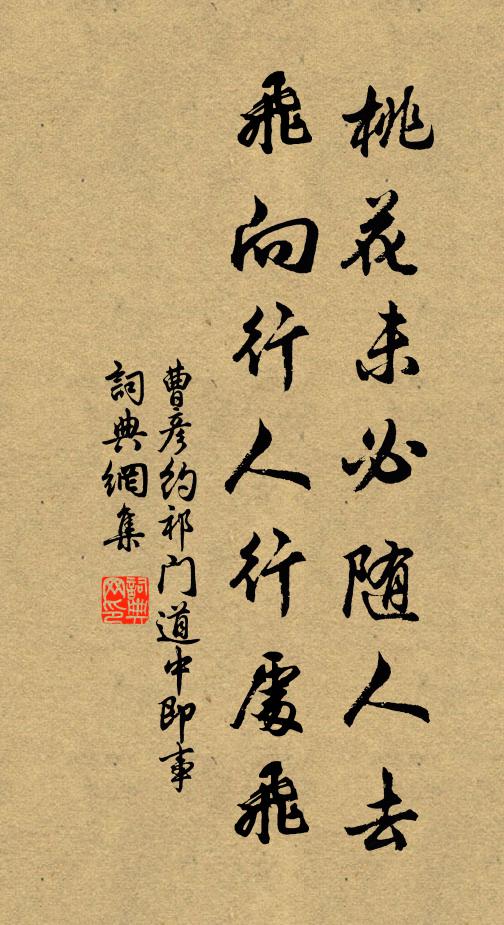 桃花未必随人去
飛向行人行處飛
曹彦约祁门道中即事
詞典網集
詞典网印